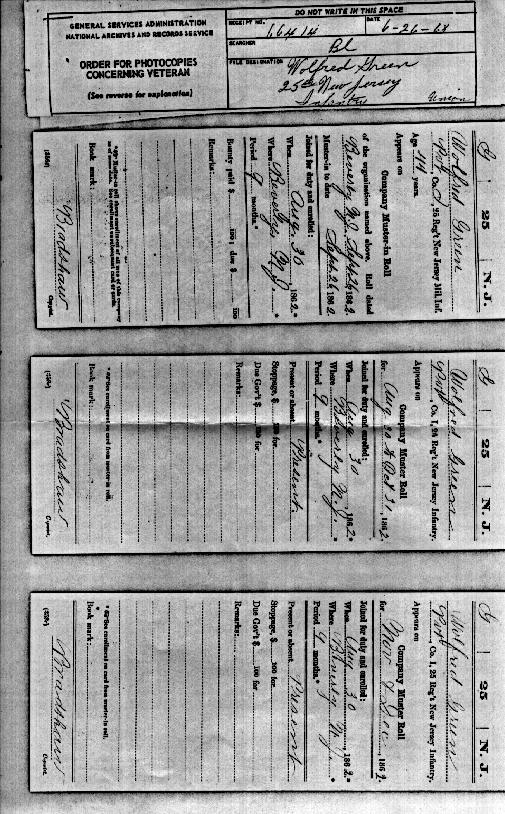 GENERAL SERVICES ADMINISTRATION
NATIONAL ARCHIVES AND RECORDS SERVICE
ORDER FOR PHOTOCOPIES
CONCERNING VETERAN
(See reverse for explanation)
DO NOT WRITE IN THIS SPACE
RECEIPT NO.
DATE
66414
6-26-68
SEARCHER
BL
FILE DESIGNATION
Wolfred Green
25th New Jersey
Infantry Union
G | 25 | N.J.
Wolfred Green
Pvt, Co. I, 25 Reg't New Jersey Mil. Inf.
Age 44 years.
Appears on
Company Muster-in Roll
of the organization named above. Roll dated
Beverly N.J. Sept 26, 1862.
Muster-in to date Sept 26, 1862.
Joined for duty and enrolled:
When Aug 30, 1862.*
Where Beverly N.J. *
Period 9 months.*
Bounty paid $ 100; due $ 100
Remarks:
Book mark:
Bradshaw
Copyist.
G | 25 | N.J.
Wolfred Green
Pvt, Co. I, 25 Reg't New Jersey Infantry.
Appears on
Company Muster Roll
for Aug 30 to Oct 31, 1862.
Joined for duty and enrolled:
When Aug 30, 1862.*
Where Beverly N.J. *
Period 9 months.*
Present or absent Present.
Stoppage, $ 100 for
Due Gov't $ 100 for
Remarks:
* See enrollment on card from muster-in roll.
Book mark:
Bradshaw
Copyist.
G | 25 | N.J.
Wolfred Green
Pvt, Co. I, 25 Reg't New Jersey Infantry.
Appears on
Company Muster Roll
for Nov & Dec, 1862.
Joined for duty and enrolled:
When Aug 30, 1862.*
Where Beverly N.J. *
Period 9 months.*
Present or absent Present
Stoppage, $ 100 for
Due Gov't $ 100 for
Remarks:
* See enrollment on card from muster-in roll.
Book mark:
Bradshaw
Copyist.